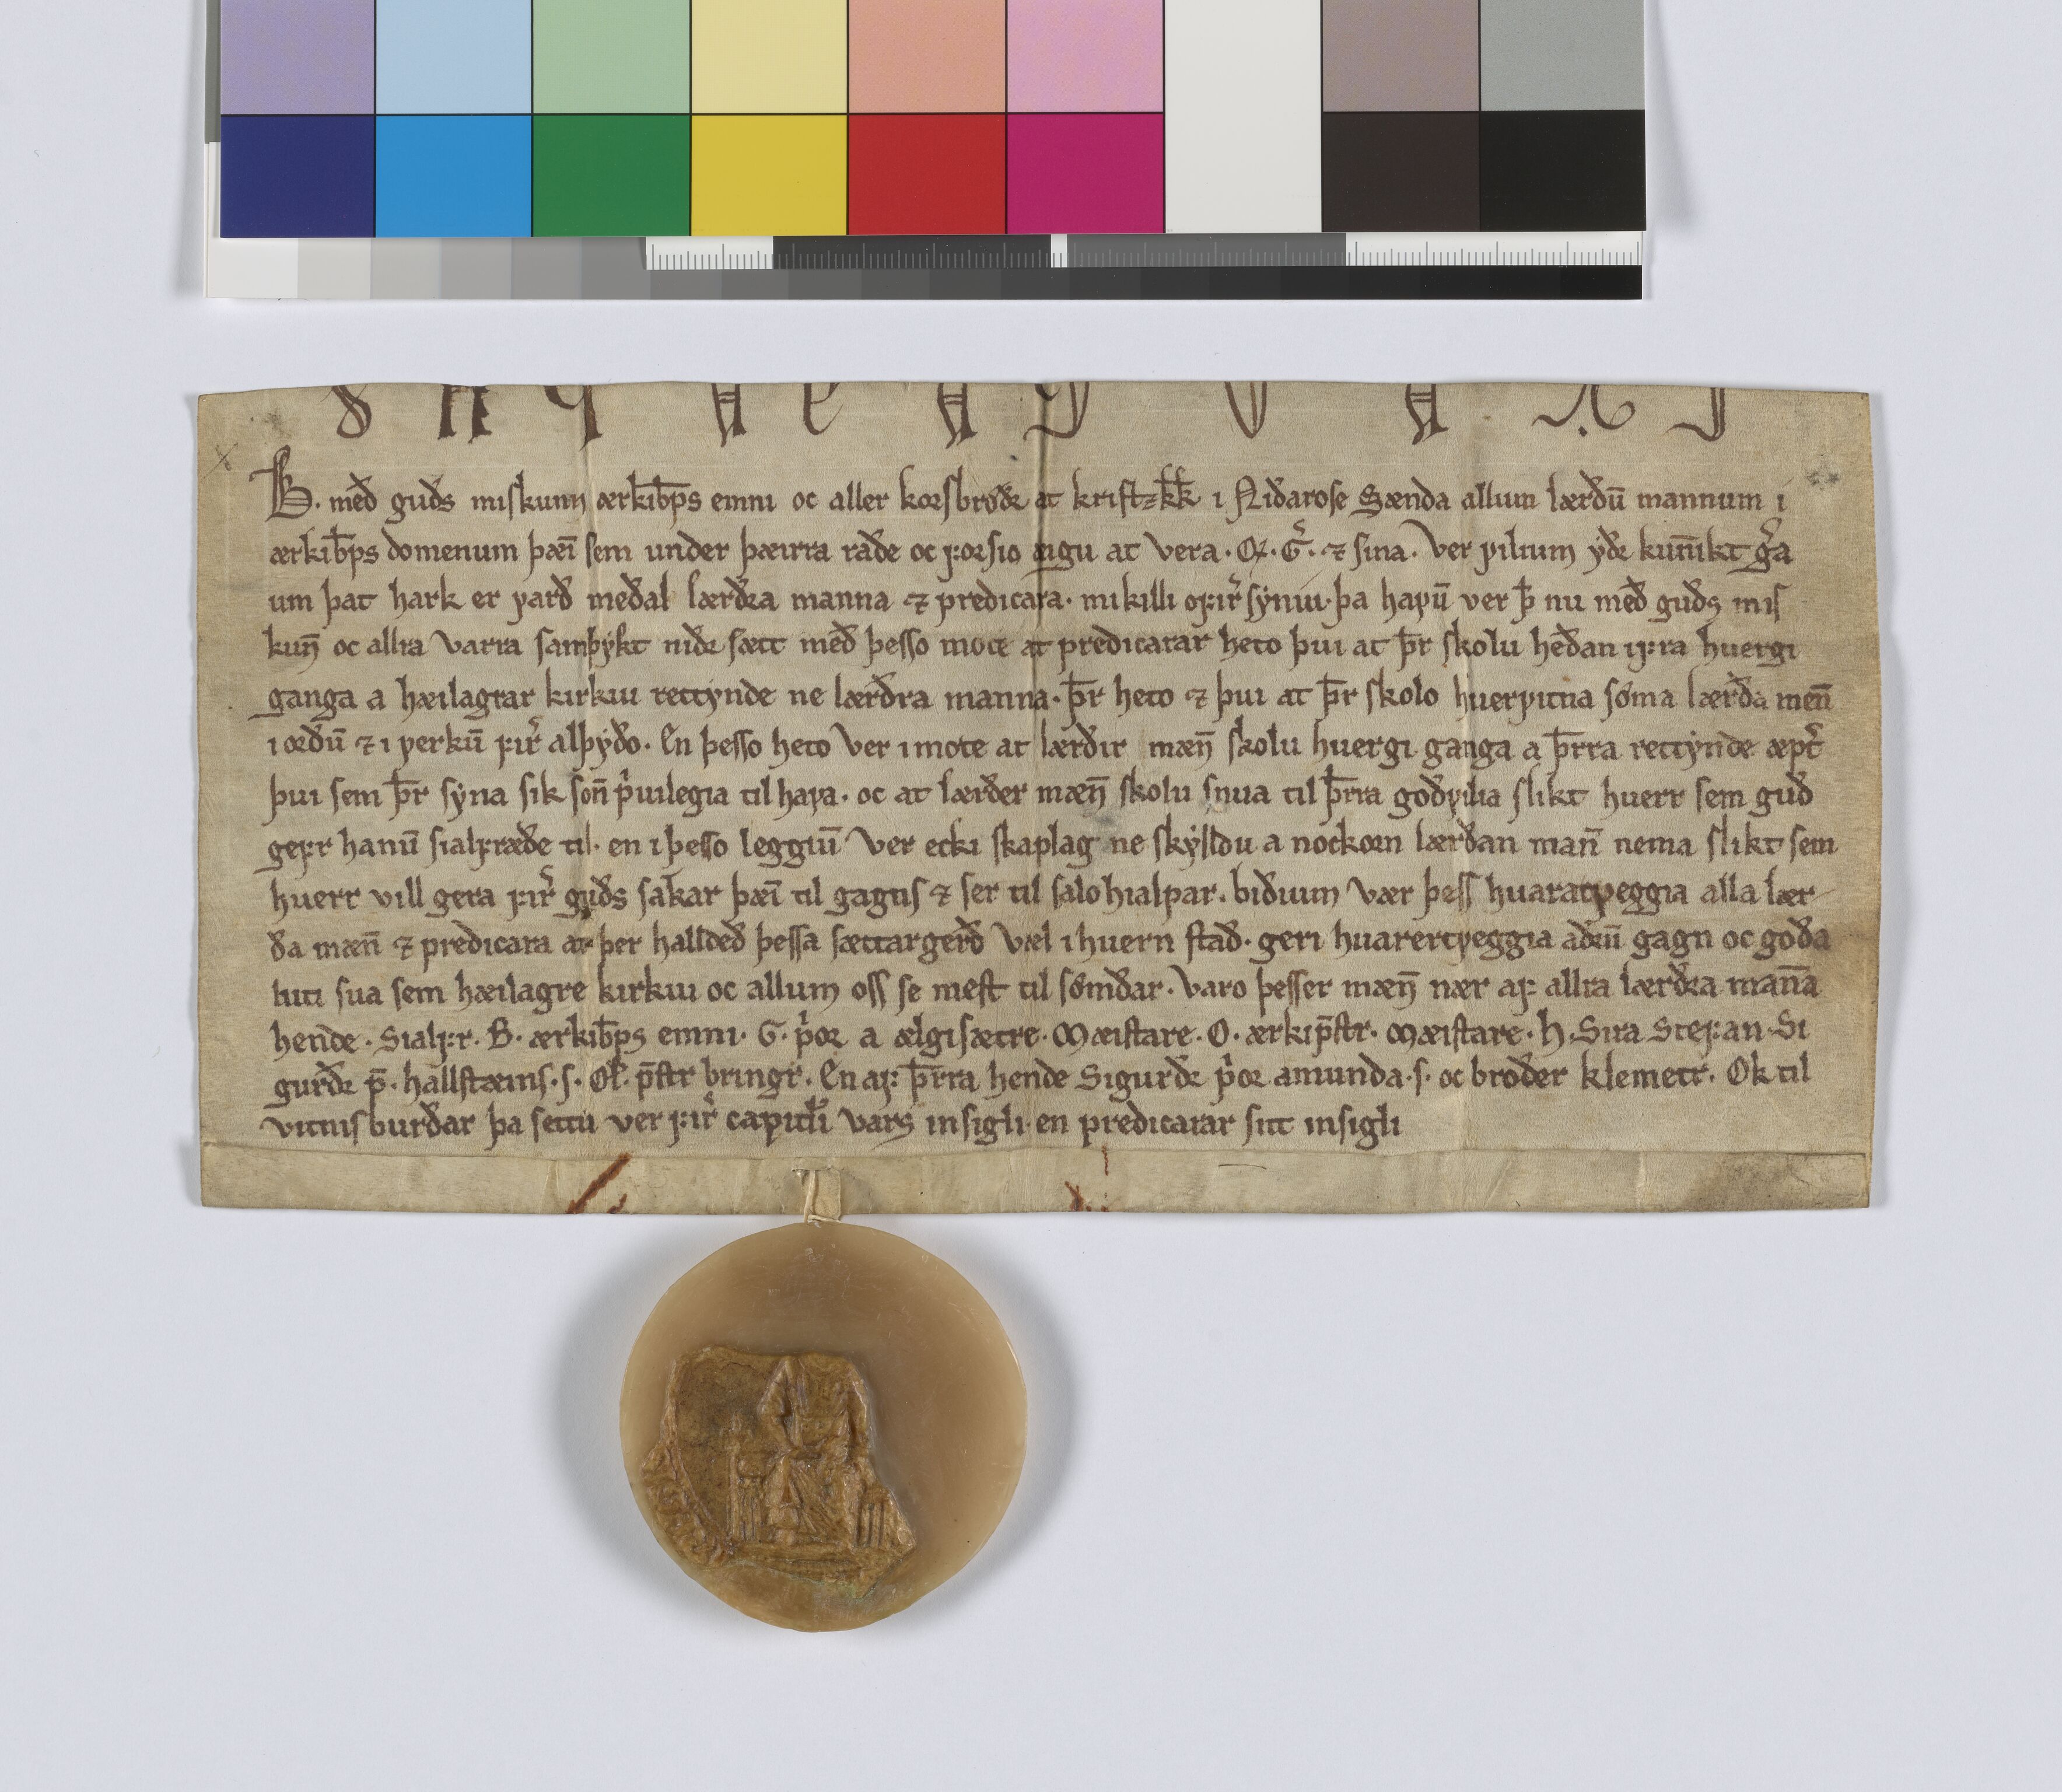 B. með guðs miskunn ærkib̄ps emni oc aller korsbrøðr at kristzk̄k i Niðarose Sænda allum lærðū mannum i
ærkib̄ps domenum þæī sem under þæirra raðe oc forsio æigu at vera. Q. G̉. ⁊ sina. Ver vilium yðr kun̄ikt gͤra
um þat hark er varð meðal lærðra manna ⁊ predicara. mikilli ofir̉ syniu. þa hafū ver þ̄ nu með guðs mis
kun̄ oc allra varra samþykt niðr sætt með þesso mote at predicarar heto þui at þ̄r skolu heðan ifra huergi
ganga a hæilagrar kirkiu rettynde ne lærðra manna. þ̄r heto ⁊ þui at þ̄r skolo huervitna søma lærða men̄
i orðū ⁊ i verkū fir̉ alþyðo. En þesso heto ver i mote at lærðir mæn̄ skolu huergi ganga a þ̄rra rettynde æpt̉
þui sem þ̄r syna sik son̄ p̉uilegia til hafa. oc at lærðer mæn̄ skolu snua til þ̄rra goðvilia slikt huerr sem guð
gefr hanū sialfræðe til. en i þesso leggiū ver ecki skaplag ne skylldu a nockorn lærðan man̄ nema slikt sem
huerr vill gera fir̉ guðs sakar þæī til gagns ⁊ ser til salo hialpar. biðium vær þess huaratveggia alla lær
ða mæn̄ ⁊ predicara at þer halldeð þessa sættargerð væl i huern stað. geri huarertveggia aðrū gagn oc goða
luti sua sem hæilagre kirkiu oc allum oss se mest til sømðar. Varo þesser mæn̄ nær af allra lærðra man̄a
hende. Sialfr. B. ærkib̄ps emni. G. p̉or a ælgisætre. Mæistare. O. ærkip̄str. Mæistare. H. Sira Stefan. Si
gurðr p̄. hallstæins. s. Ol̄. p̄str bringr. En af þ̄rra hende Sigurðr p̉or amunda. s. oc broðer klemetr. Ok til
vitnisburðar þa settu ver fir̉ capitl̄i vars insigli. en predicarar sitt insigli